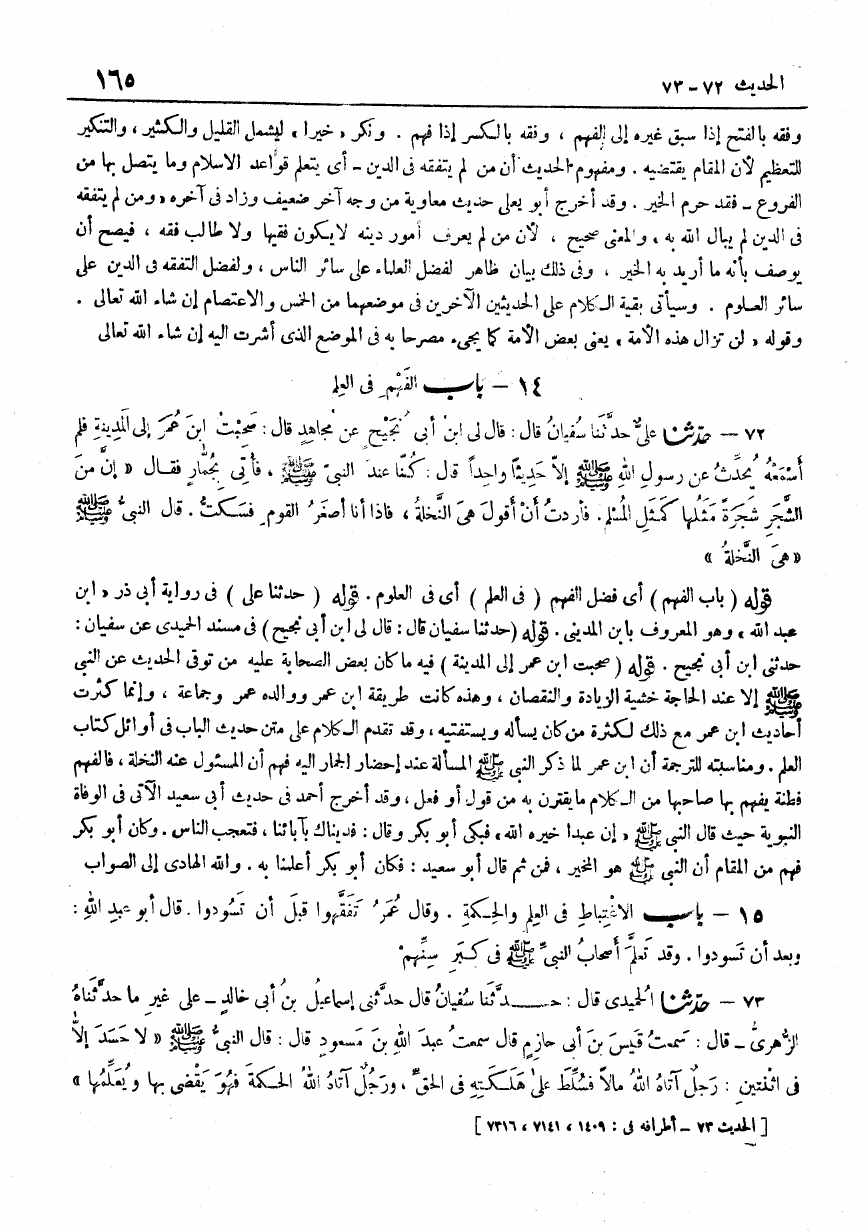 الحديث ٧٢ - ٧٣
١٦٥
وفقه بالفتح إذا سبق غيره إلى الفهم ، وفقه بالكسر إذا فهم . ونكر « خيرا » ليشمل القليل والكثير ، والتنكير
للتعظيم لأن المقام يقتضيه . ومفهوم الحديث أن من لم يتفقه فى الدين - أى يتعلم قواعد الاسلام وما يتصل بها من
الفروع - فقد حرم الخير . وقد أخرج أبو يعلى حديث معاوية من وجه آخر ضعيف وزاد فى آخره « ومن لم يتفقه
فى الدين لم يبال الله به » والمعنى صحيح ، لأن من لم يعرف أمور دينه لايكون فقيها ولا طالب فقه ، فيصح أن
يوصف بأنه ما أريد به الخير ، وفى ذلك بيان ظاهر لفضل العلماء على سائر الناس ، ولفضل التفقه فى الدين على
سائر العلوم . وسيأتى بقية الكلام على الحديثين الآخرين فى موضعهما من الخمس والاعتصام إن شاء الله تعالى .
وقوله « لن تزال هذه الأمة » يعنى بعض الأمة كما يجىء مصرحا به فى الموضع الذى أشرت اليه إن شاء الله تعالى
١٤ - باب الفَهْمِ فى العِلم
٧٢ - حدّثنا علىٌّ حدَّثَنا سُفيانُ قال : قال لى ابنُ أبى نَجيْحٍ عن مجاهدٍ قال : صَحِبْتُ ابنَ عُمَرَ إلى المَدِينةِ فلم
أسْمَعْهُ يُحدِّثُ عن رسولِ اللهِ ﷺ إلاّ حَدِيثًا واحِداً قال : كُنّا عندَ النبىّ ﷺ ، فأُتِىَ بِجُمّارٍ فقال « إنَّ منَ
الشَّجَرِ شَجَرَةً مَثَلُها كَمَثَلِ المُسْلِمِ . فأردتُ أنْ أقولَ هىَ النَّخلةُ ، فاذا أنا أصغَرُ القومِ فسَكتُّ . قال النبىُّ ﷺ
« هىَ النَّخلةُ »
قوله ( باب الفهم ) أى فضل الفهم ( فى العلم ) أى فى العلوم . قوله ( حدثنا على ) فى رواية أبى ذر « ابن
عبد الله » وهو المعروف بابن المدينى . قوله ( حدثنا سفيان قال : قال لى ابن أبى نجيح ) فى مسند الحميدى عن سفيان :
حدثنى ابن أبى نجيح . قوله ( صحبت ابن عمر إلى المدينة ) فيه ما كان بعض الصحابة عليه من توقى الحديث عن النبى
ﷺ إلا عند الحاجة خشية الزيادة والنقصان ، وهذه كانت طريقة ابن عمر ووالده عمر وجماعة ، وإنما كثرت
أحاديث ابن عمر مع ذلك لكثرة من كان يسأله ويستفتيه ، وقد تقدم الكلام على متن حديث الباب فى أوائل كتاب
العلم . ومناسبته للترجمة أن ابن عمر لما ذكر النبى ﷺ المسألة عند إحضار الجمار اليه فهم أن المسئول عنه النخلة ، فالفهم
فطنة يفهم بها صاحبها من الكلام ما يقترن به من قول أو فعل ، وقد أخرج أحمد فى حديث أبى سعيد الآتى فى الوفاة
النبوية حيث قال النبى ﷺ « إن عبدا خيره الله » فبكى أبو بكر وقال : فديناك بآبائنا ، فتعجب الناس . وكان أبو بكر
فهم من المقام أن النبى ﷺ هو المخير ، فمن ثم قال أبو سعيد : فكان أبو بكر أعلمنا به . والله الهادى إلى الصواب
١٥ - باب الاغْتِباطِ فى العِلمِ والحِكمةِ . وقال عُمَرُ تَفَقَّهوا قبلَ أن تَسُودوا . قال أبو عبدِ اللهِ :
وبعد أن تَسودوا . وقد تَعلَّمَ أصحابُ النبىِّ ﷺ فى كِبَرِ سِنِّهمْ
٧٣ - حدّثنا الُحميدى قال : حدَّثَنا سُفيانُ قال حدَّثنى إسماعيلُ بنُ أبى خالدٍ - على غيرِ ما حدَّثَناهُ
الزُّهرىُّ - قال : سَمعتُ قَيسَ بنَ أبى حازمٍ قال سمعتُ عبدَ اللهِ بنَ مَسعودٍ قال : قال النبىُّ ﷺ « لا حَسَدَ إلاّ
فى اثْنَتينِ : رَجلٌ آتاهُ اللهُ مالاً فسُلِّطَ علىٰ هَلَكتِهِ فى الحقِّ ، ورَجُلٌ آتاهُ اللهُ الحكمةَ فهُوَ يَقْضى بها ويُعَلِّمُها »
[ الحديث ٧٣ - أطرافه فى : ١٤٠٩ ، ٧١٤١ ، ٧٣١٦ ]